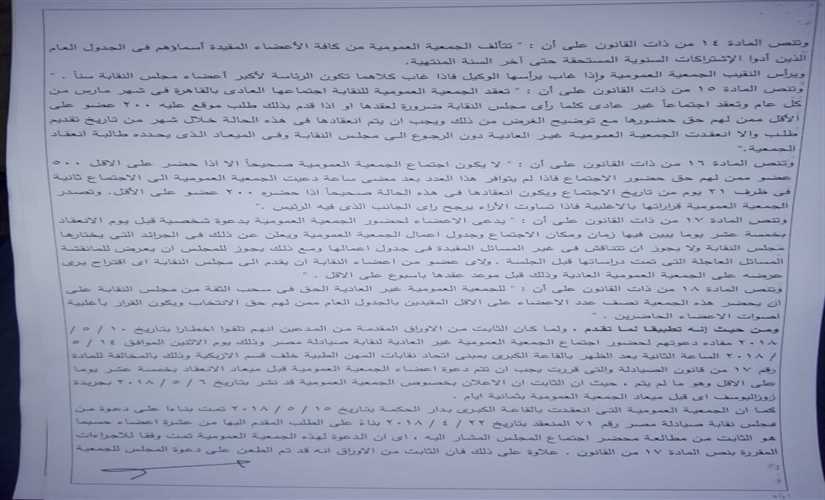 وتنص المادة ١٤ من ذات القانون على أن : " تتألف الجمعية العمومية من كافة الأعضاء المقيدة أسماؤهم فى الجدول العام
الذين أدوا الإشتراكات السنوية المستحقة حتى آخر السنة المنتهية.
ويرأس النقيب الجمعية العمومية وإذا غاب يرأسها الوكيل فاذا غاب كلاهما تكون الرئاسة لأكبر أعضاء مجلس النقابة سناً . "
وتنص المادة ١٥ من ذات القانون على أن : " تعقد الجمعية العمومية للنقابة اجتماعها العادى بالقاهرة فى شهر مارس من
كل عام وتعقد اجتماعاً غير عادى كلما رأى مجلس النقابة ضرورة لعقدها او اذا قدم بذلك طلب موقع عليه ٢٠٠ عضو على
الأقل ممن لهم حق حضورها مع توضيح الغرض من ذلك ويجب ان يتم انعقادها فى هذه الحالة خلال شهر من تاريخ تقديم
طلب والا انعقدت الجمعية العمومية غير العادية دون الرجوع الى مجلس النقابة وفى الميعاد الذى يحدده طالبة انعقاد
الجمعية."
وتنص المادة ١٦ من ذات القانون على أن : " لا يكون اجتماع الجمعية العمومية صحيحاً الا اذا حضر على الاقل ٥٠٠
عضو ممن لهم حق حضور الاجتماع فاذا لم يتوافر هذا العدد بعد مضى ساعة دعيت الجمعية العمومية الى الاجتماع ثانية
فى ظرف ٢١ يوم من تاريخ الاجتماع ويكون انعقادها فى هذه الحالة صحيحاً اذا حضره ٢٠٠ عضو على الأقل. وتصدر
الجمعية العمومية قراراتها بالاغلبية فاذا تساوت الأراء يرجح راى الجانب الذى فيه الرئيس ."
وتنص المادة ١٧ من ذات القانون على أن : " يدعى الاعضاء لحضور الجمعية العمومية بدعوة شخصية قبل يوم الانعقاد
بخمسة عشر يوما يبين فيها زمان ومكان الاجتماع وجدول اعمال الجمعية العمومية ويعلن عن ذلك فى الجرائد التى يختارها
مجلس النقابة ولا يجوز ان تتناقش فى غير المسائل المقيدة فى جدول اعمالها ومع ذلك يجوز للمجلس ان يعرض للمناقشة
المسائل العاجلة التى تمت دراساتها قبل الجلسة . ولاى عضو من اعضاء النقابة ان يقدم الى مجلس النقابة اى اقتراح يرى
عرضه على الجمعية العمومية العادية وذلك قبل موعد عقدها باسبوع على الاقل . "
وتنص المادة ١٨ من ذات القانون على أن : " للجمعية العمومية غير العادية الحق فى سحب الثقة من مجلس النقابة على
ان يحضر هذه الجمعية نصف عدد الاعضاء على الاقل المقيدين بالجدول العام ممن لهم حق الانتخاب ويكون القرار بأغلبية
اصوات الاعضاء الحاضرين . "
ومن حيث إنه تطبيقا لما تقدم . ولما كان الثابت من الاوراق المقدمة من المدعين انهم تلقوا اخطارا بتاريخ ١٠ / ٥ /
٢٠١٨ مفاده دعوتهم لحضور اجتماع الجمعية العمومية غير العادية لنقابة صيادلة مصر وذلك يوم الاثنين الموافق ١٤ / ٥
/ ٢٠١٨ الساعة الثانية بعد الظهر بالقاعة الكبرى بمبنى اتحاد نقابات المهن الطبية خلف قسم الازبكية وذلك بالمخالفة للمادة
رقم ١٧ من قانون الصيادلة والتى قررت يجب ان تتم دعوة اعضاء الجمعية العمومية قبل ميعاد الانعقاد بخمسة عشر يوما
على الاقل وهو ما لم يتم ، حيث ان الثابت ان الاعلان بخصوص الجمعية العمومية قد نشر بتاريخ ٦ / ٥ / ٢٠١٨ بجريدة
روزاليوسف اى قبل ميعاد الجمعية العمومية بثمانية ايام .
كما ان الجمعية العمومية التى انعقدت بالقاعة الكبرى بدار الحكمة بتاريخ ١٥ / ٥ / ٢٠١٨ تمت بناءا على دعوة من
مجلس نقابة صيادلة مصر رقم ٧١ المنعقد بتاريخ ٢٢ / ٤ / ٢٠١٨ بناءً على الطلب المقدم اليها من عشرة اعضاء حسبما
هو الثابت من مطالعة محضر اجتماع المجلس المشار اليه ، اى ان الدعوة لهذه الجمعية العمومية تمت وفقا للاجراءات
المقررة بنص المادة ١٧ من القانون . علاوة على ذلك فان الثابت من الاوراق انه قد تم الطعن على دعوة المجلس للجمعية